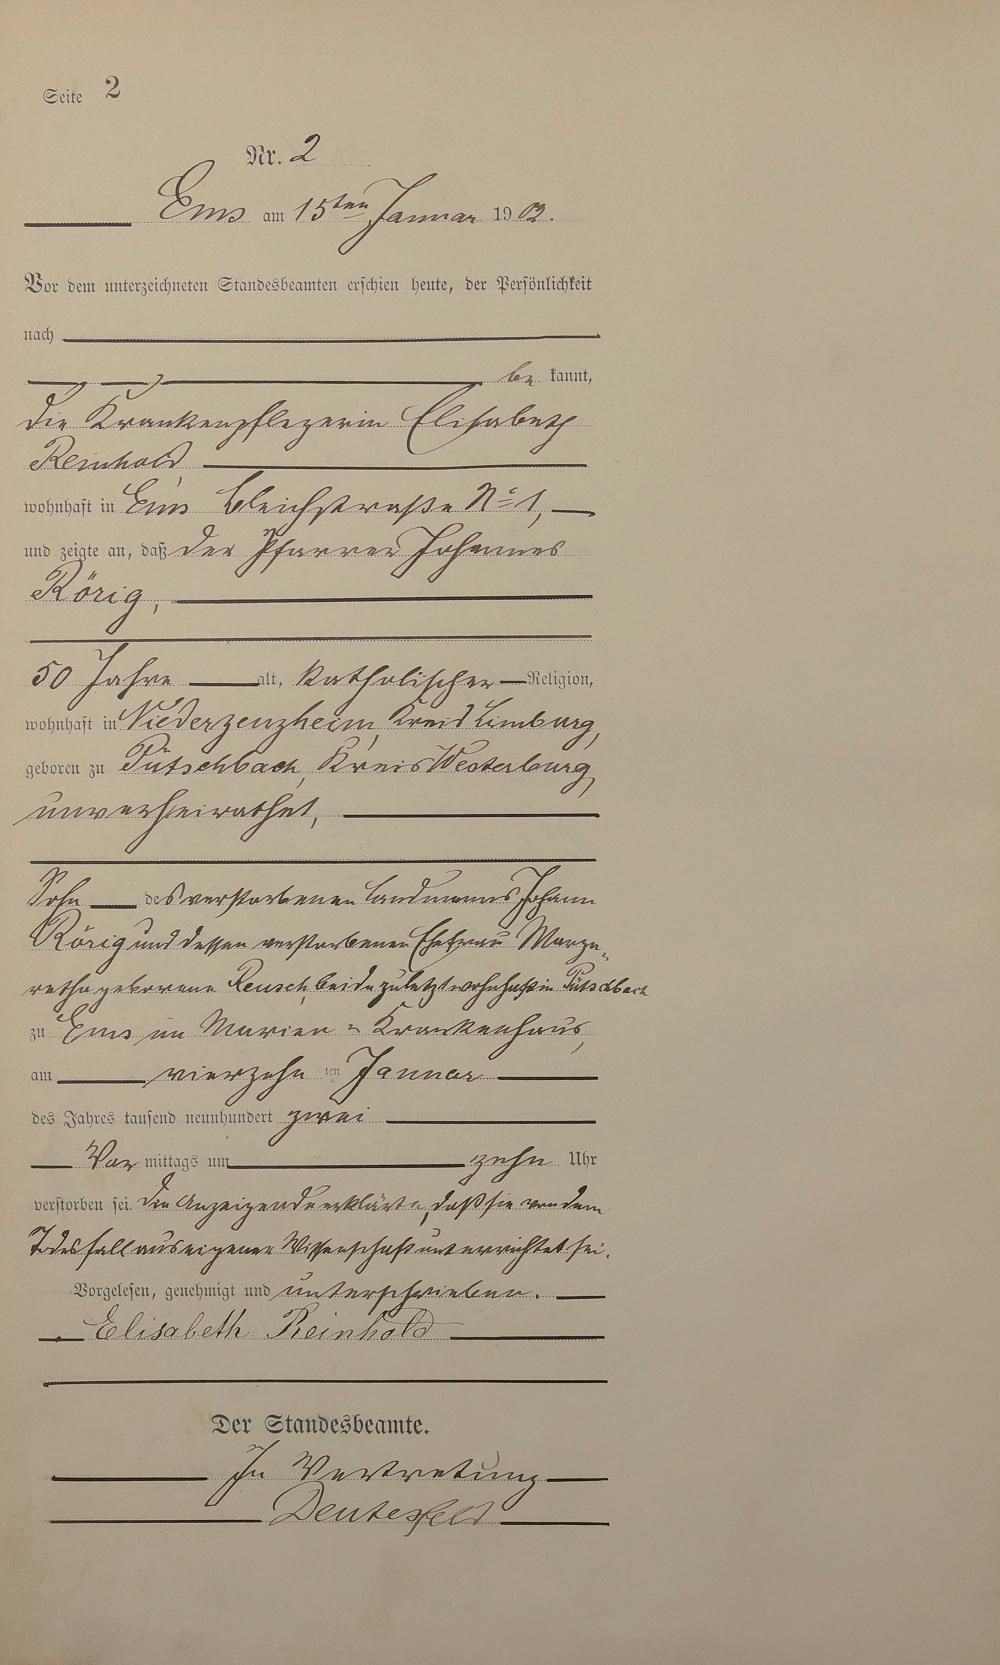 Seite 2
Nr. 2
Ems am 15ten Januar 1902.
Vor dem unterzeichneten Standesbeamten erschien heute, der Persönlichkeit
nach
be kannt,
die Krankenpflegerin Elisabeth
Reinhold
wohnhaft in Ems Bleichstraße No 1,
und zeigte an, daß der Pfarrer Johannes
Rörig,
50 Jahre alt, katholischer Religion,
wohnhaft in Niederzeuzheim, Kreis Limburg,
geboren zu Pütschbach, Kreis Westerburg,
unverheirathet,
Sohn des verstorbenen Landmanns Johann
Rörig und dessen verstorbenen Ehefrau Marga-
retha geborene Reusch, beide zuletzt wohnhaft in Pütschbach
zu Ems im Marien-Krankenhaus,
am vierzehn ten Januar
des Jahres tausend neunhundert zwei
Vor mittags um zehn Uhr
verstorben sei. Die Anzeigende erklärte, daß sie von dem
Todesfall aus eigener Wissenschaft unterrichtet sei.
Vorgelesen, genehmigt und unterschrieben.
Elisabeth Reinhold
Der Standesbeamte.
In Vertretung